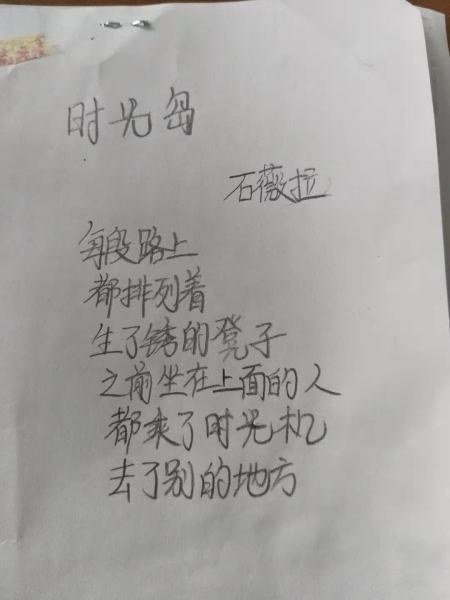 时光岛
石薇拉
每段路上
都排列着
生了锈的凳子
之前坐在上面的人
都乘了时光机
去了别的地方